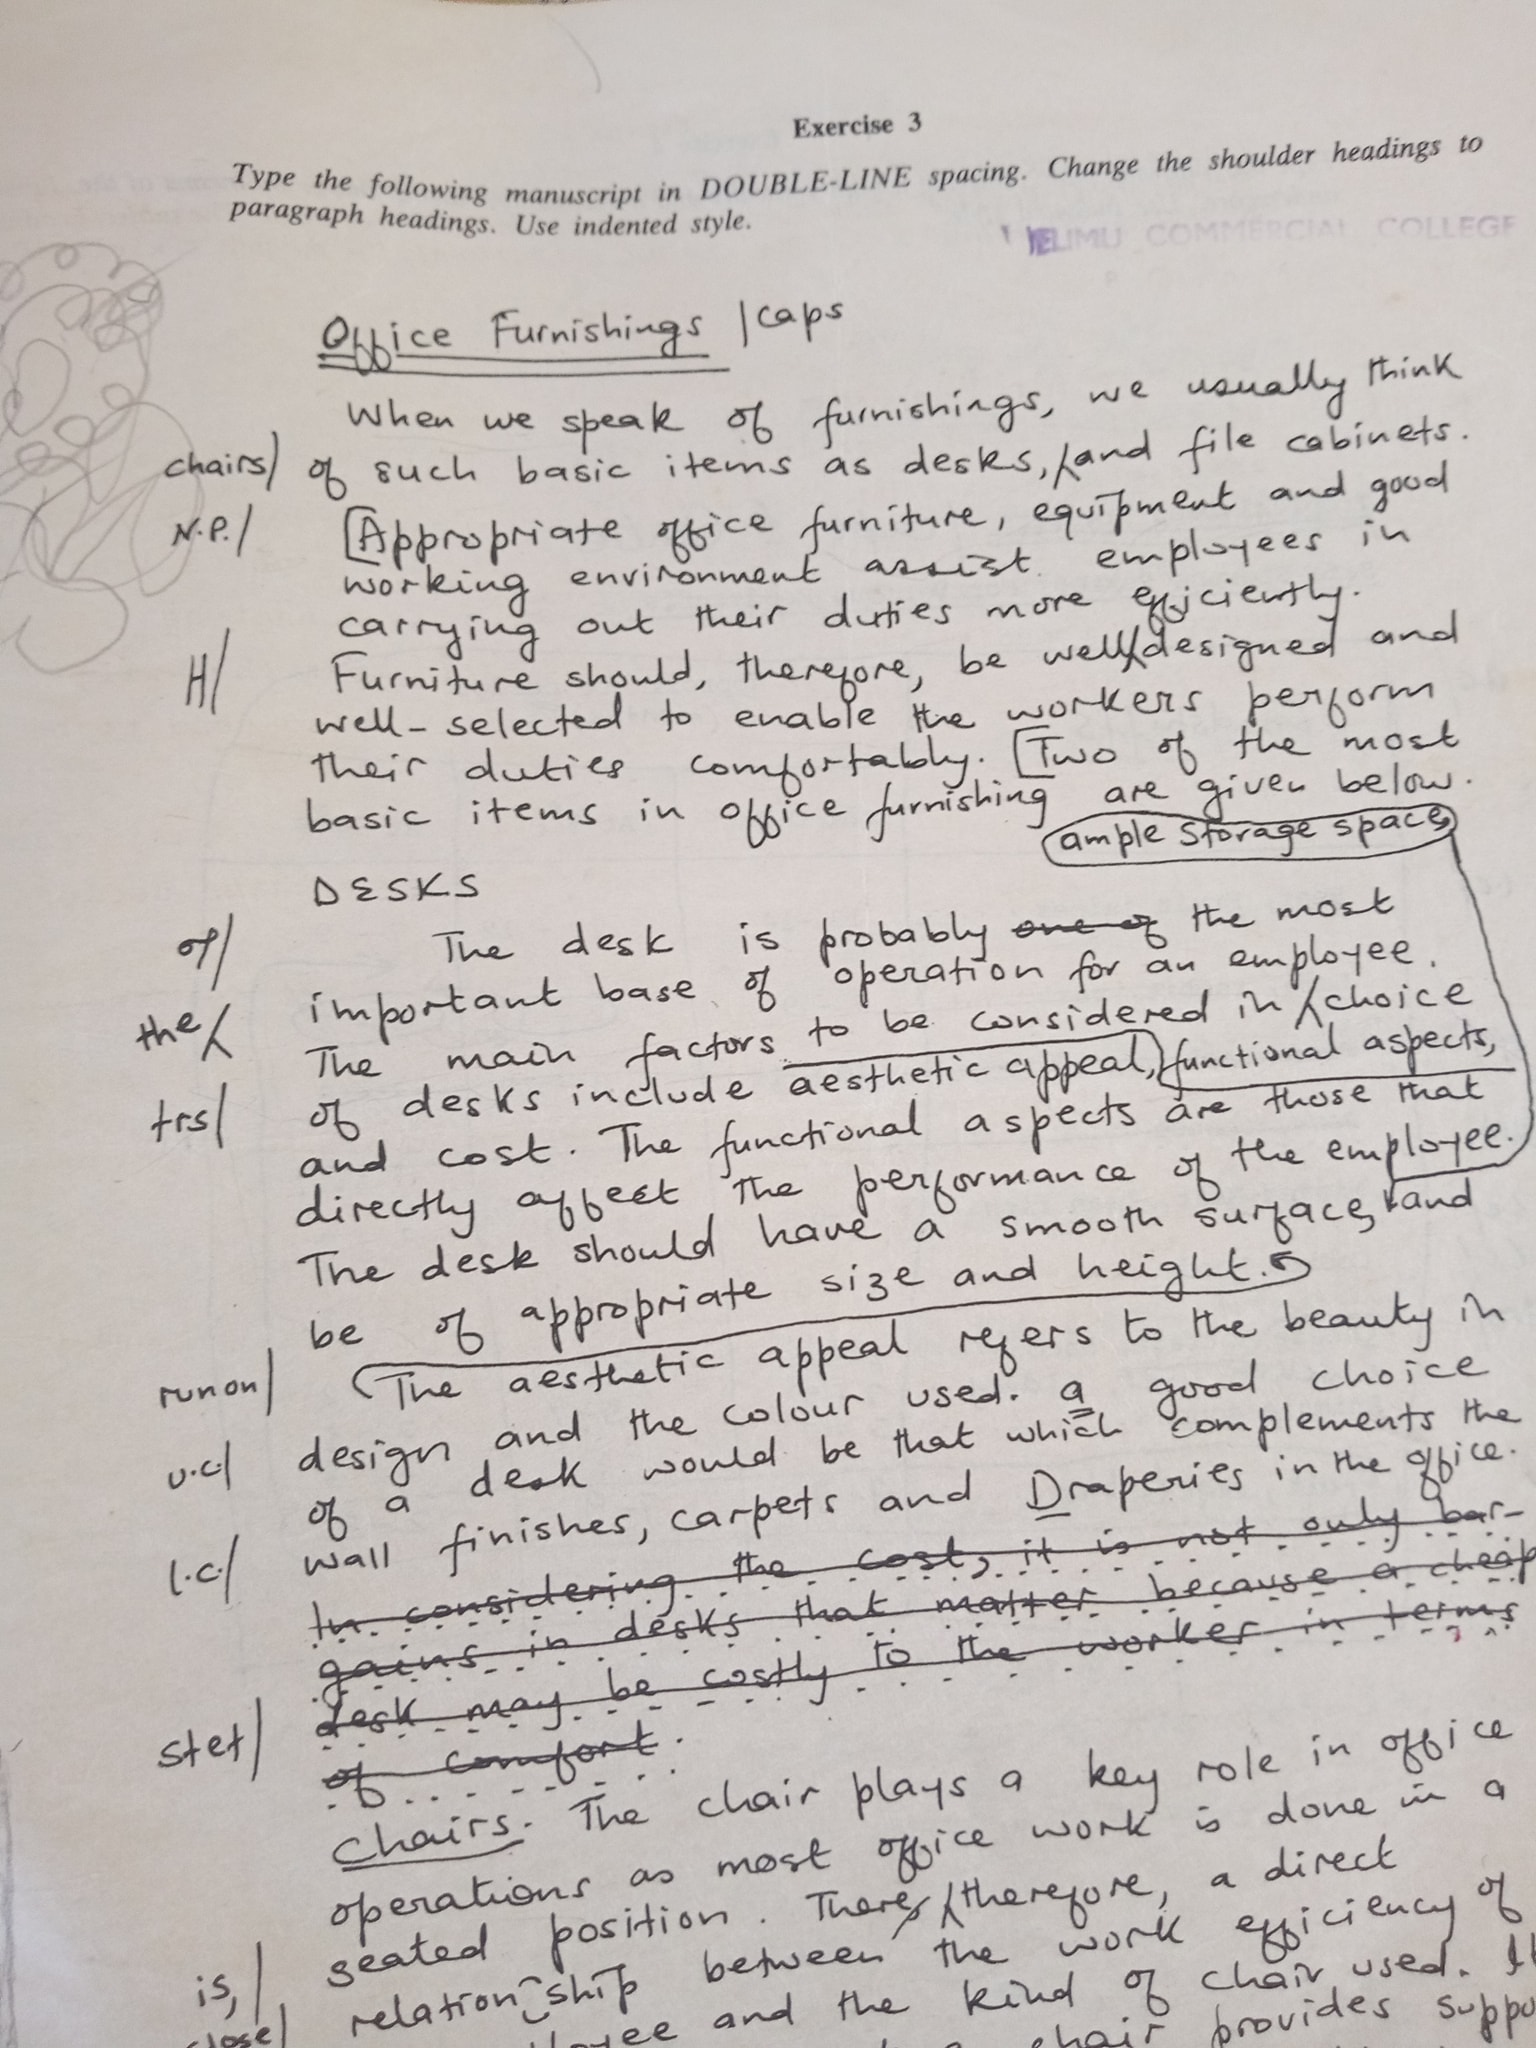 Exercise 3
Type the following manuscript in DOUBLE-LINE spacing. Change the shoulder headings to
paragraph headings. Use indented style.
ELIMU COMMERCIAL COLLEGE
Office Furnishings | caps
When we speak of furnishings, we usually think
chairs/ of such basic items as desks, ⁁and file cabinets.
N.P./ [Appropriate office furniture, equipment and good
working environment assist employees in
carrying out their duties more efficiently.
H/ Furniture should, therefore, be well⁁designed and
well-selected to enable the workers perform
their duties comfortably. [Two of the most
basic items in office furnishing are given below.
ample storage space,
DESKS
of/ The desk is probably one of the most
important base of operation for an employee.
the⁁ The main factors to be considered in ⁁choice
trs/ of desks include aesthetic appeal, functional aspects,
and cost. The functional aspects are those that
directly affect the performance of the employee.
The desk should have a smooth surface, and
be of appropriate size and height.
run on/ The aesthetic appeal refers to the beauty in
design and the colour used. a good choice
u.c./ of a desk would be that which complements the
l.c./ wall finishes, carpets and Draperies in the office.
In considering the cost, it is not only bar-
gains in desks that matter because a cheap
desk may be costly to the worker in terms
stet/ of comfort.
Chairs. The chair plays a key role in office
operations as most office work is done in a
seated position. There ⁁therefore, a direct
is,/ relation ship between the work efficiency of
close/ and the kind of chair used.
chair provides